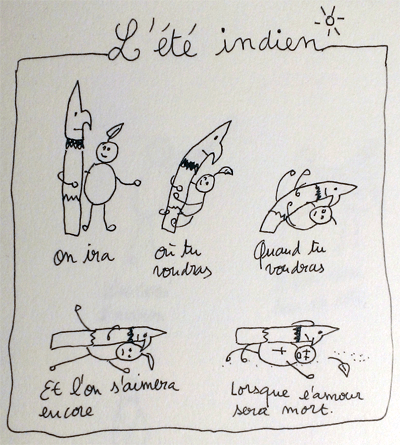 L'été indien
On ira
où tu
voudras
Quand tu
voudras
Et l'on s'aimera
encore
Lorsque l'amour
sera mort.